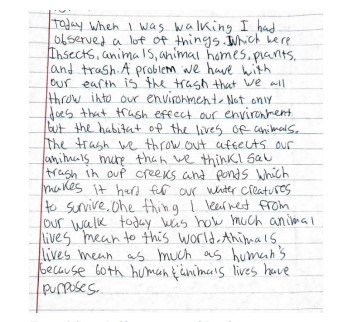 Today when I was walking I had
observed a lot of things. Which were
Insects, animals, animal homes, plants,
and trash. A problem we have with
our earth is the trash that we all
throw into our environment. Not only
does that trash effect our environment
but the habitat of the lives of animals.
The trash we throw out affects our
animals more than we think I saw
trash in our creeks and ponds which
makes it hard for our water creatures
to survive. One thing I learned from
our walk today was how much animal
lives mean to this world. Animals
lives mean as much as human's
because both human & animals lives have
purposes.